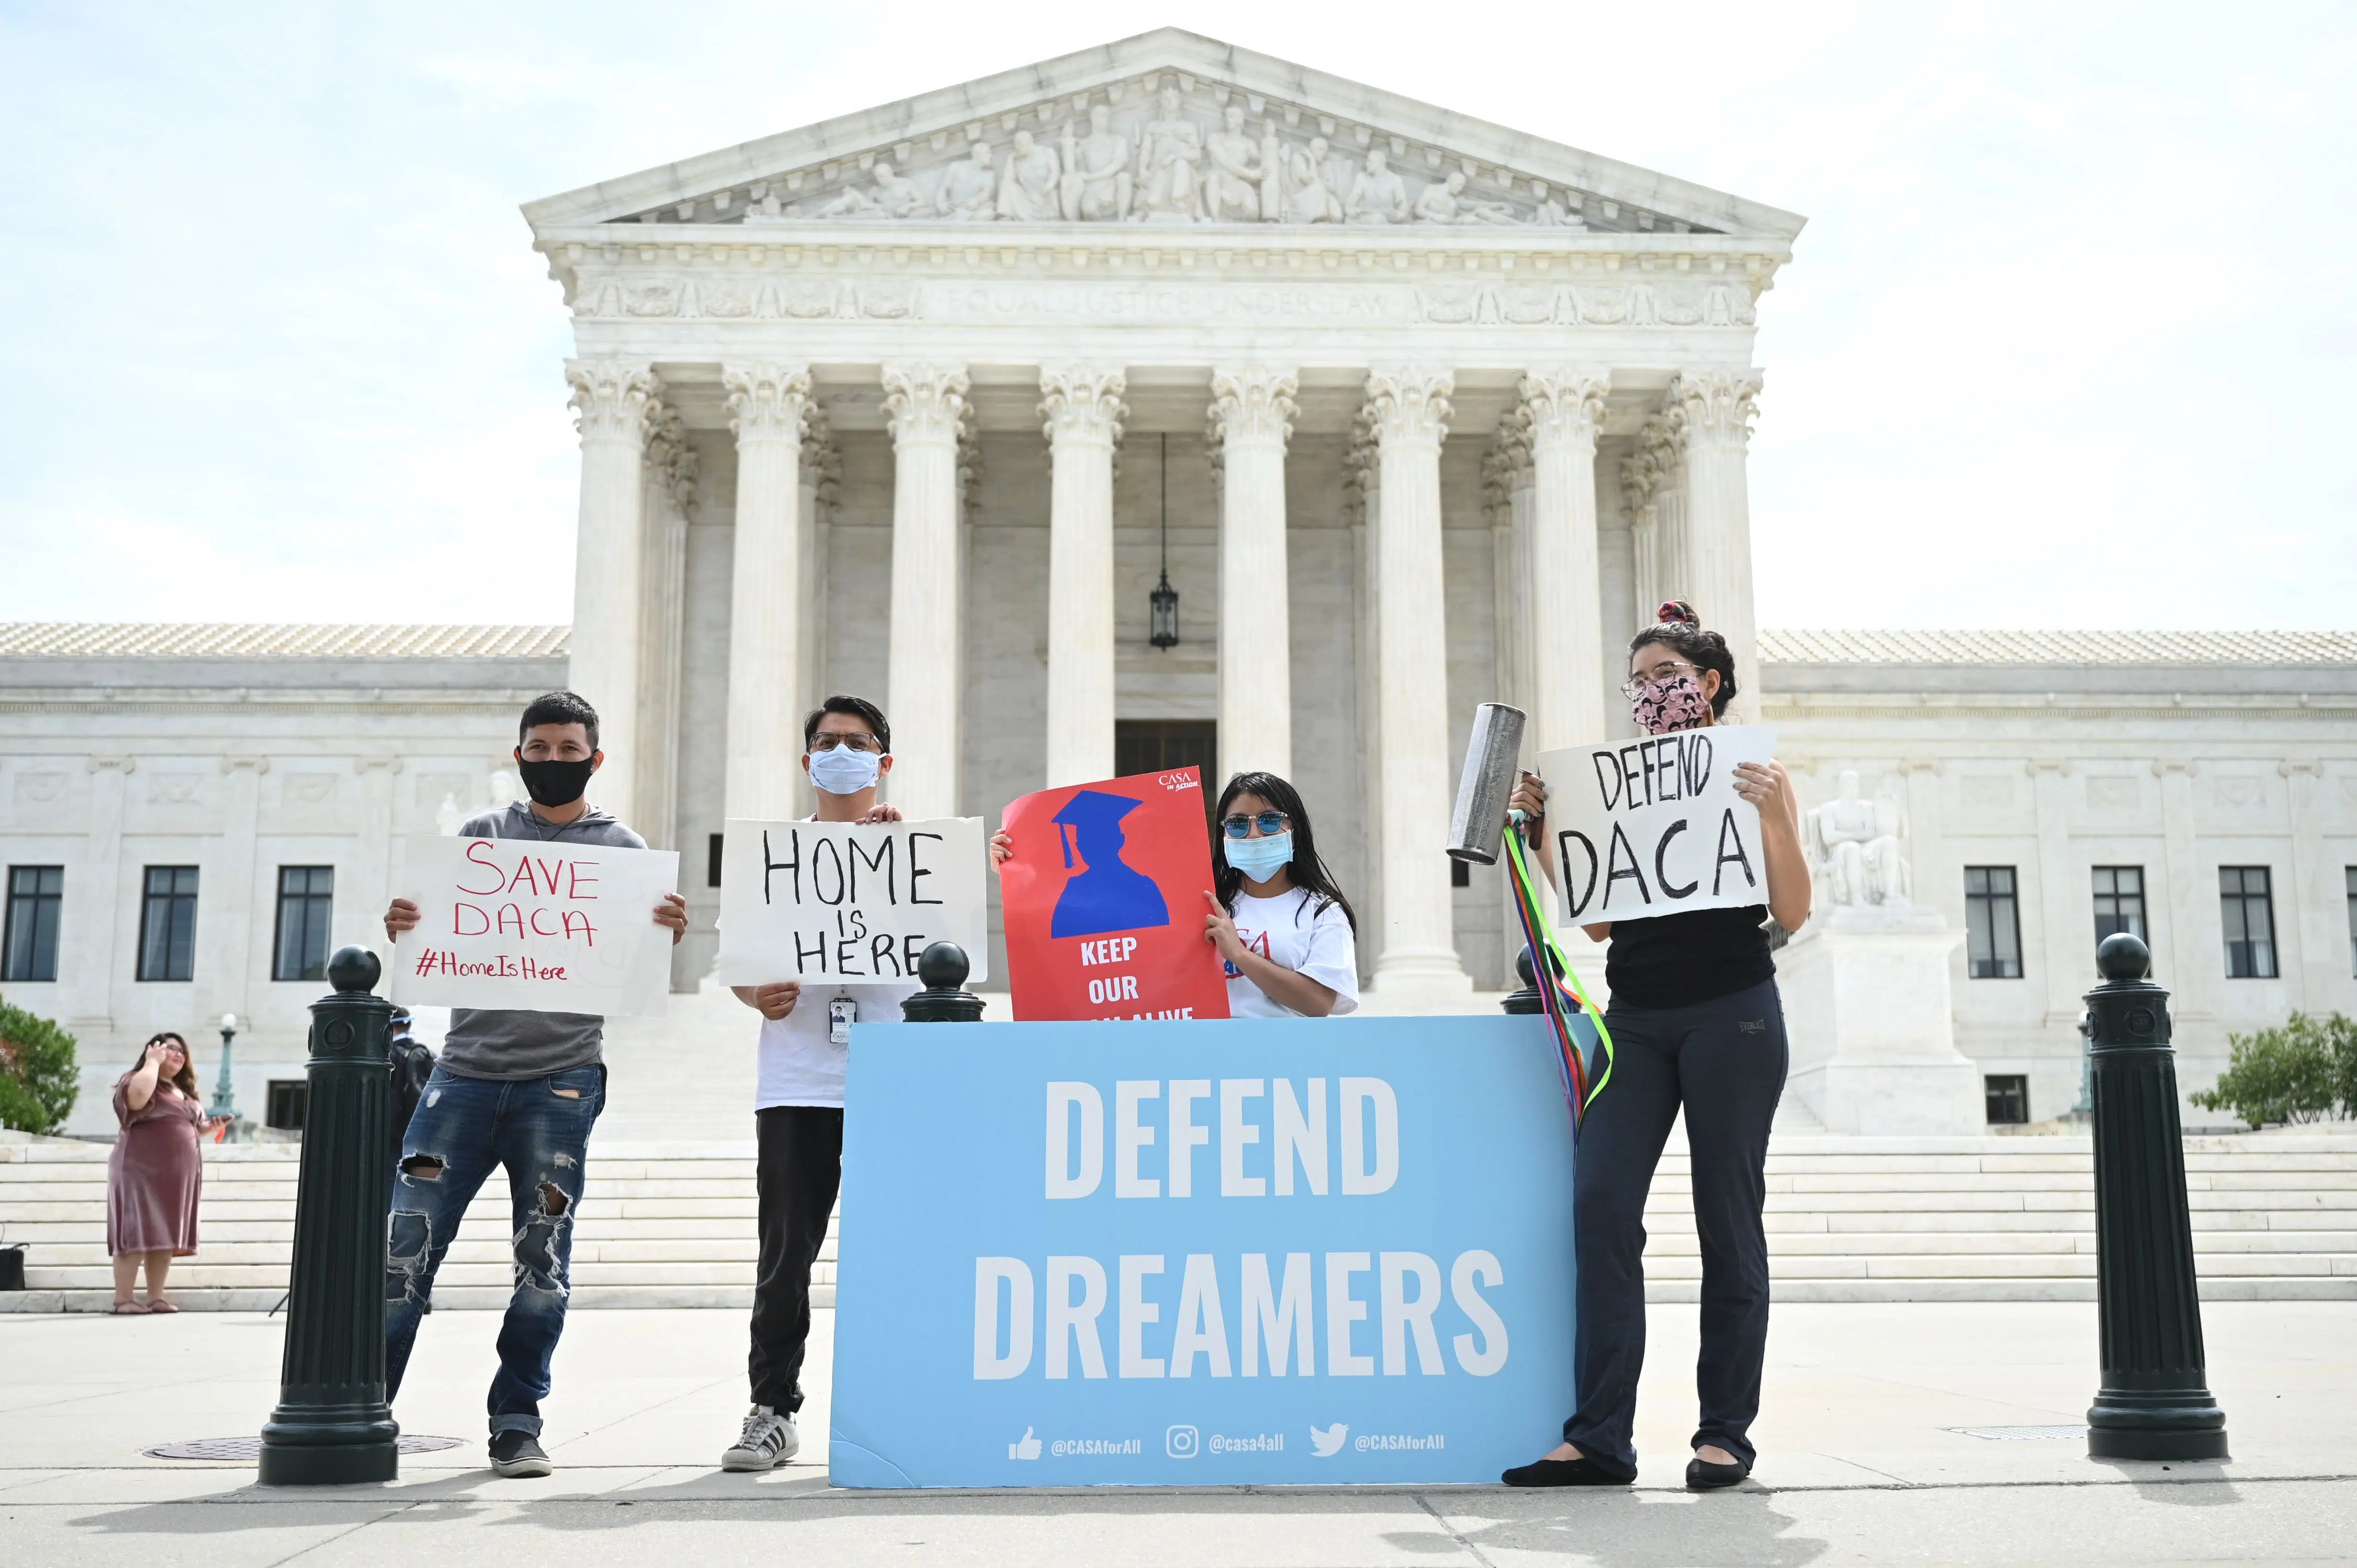 EQUAL JUSTICE UNDER LAW
SAVE
DACA
#HomeIsHere
HOME
IS
HERE
CASA
IN ACTION
KEEP
OUR
ALIVE
DEFEND
DACA
EVERLAST
DEFEND
DREAMERS
@CASAforAll @casa4all @CASAforAll